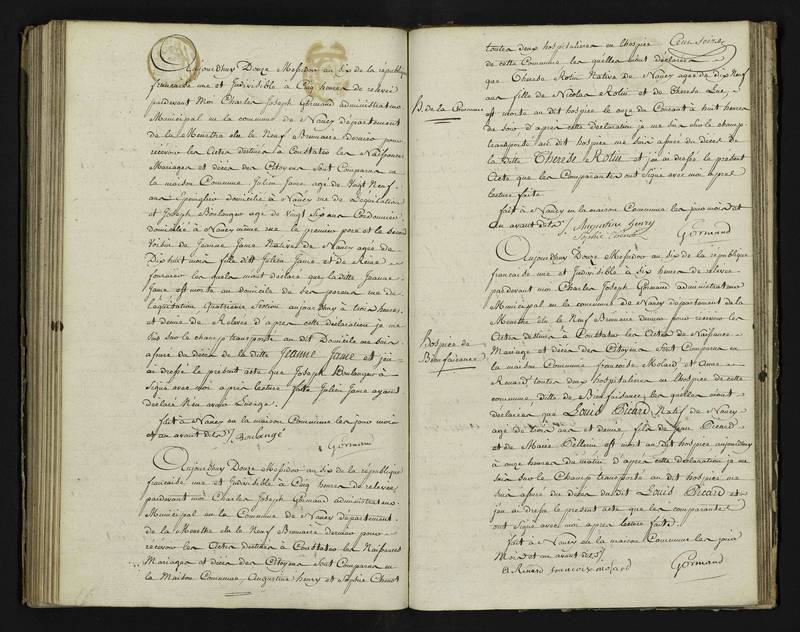 Aujourdhuy Douze Messidor an six de la république
francaise une et Indivisible à Cinq heures de relevée
pardevant Moi Charles Joseph Gormand administrateur
Municipal en la commune de Nancy département
de la Meurthe élu le Neuf Brumaire dernier pour
recevoir les Actes destinés à Constater les Naissances
Mariages et décès des Citoyens Sont Comparus en
la maison Commune Julien Jame age de Vingt Neuf
ans Epinglier domicilié à Nancy rue de L'equitation
et Joseph Boulanger age de Vingt Six ans Cordonnier
domicilié à Nancy même rue le premier pere et le second
Voisin de Jeanne Jame Native de Nancy agée de
Dix huit mois fille dud. Julien Jame et de Reine
les quels mont déclaré que la ditte Jeanne
Jame est morte au domicile de ses parens rue de
L'equitation quatrieme Section aujourdhuy à trois heures
et demie de Relevée d'après cette déclaration je me
suis Sur le champ transporté au dit Domicile me suis
assuré du décès de la ditte Jeanne Jame et j'ai
dressé le present acte que Joseph Boulanger a
Signé avec moi apres lecture faite Julien Jame ayant
declaré Nen avoir Lusage.
fait à Nancy en la maison Commune les jour mois
et an avant dits /. Boulangé
Gormand
Aujourdhuy Douze Messidor an six de la république
francaise une et Indivisible à Cinq heures de relevée
pardevant moi Charles Joseph Gormand administrateur
Municipal en la Commune de Nancy département
de la Meurthe élu le Neuf Brumaire dernier pour
recevoir les Actes destinés à Constater les Naissances
Mariages et décès des Citoyens Sont Comparus en
la Maison Commune Augustine henry et Sophie Chenot
toutes deux hospitalieres en lhospice
de cette Commune les quelles mont déclaré
que Therese Rolin Native de Nancy agée de dix Neuf
ans fille de Nicolas Rolin et de Therese Luc,
est morte au dit hospice le onze du Courant à huit heures
de soir d'apres cette déclaration je me suis sur le champ
transporté au dit hospice me suis assuré du décès de
la ditte Therese Rolin et j'ai dressé le present
Acte que les Comparantes ont Signé avec moi apres
lecture faite
fait à Nancy en la maison Commune les jour mois et
an avant dits /. Augustine henry
Sophie Chenot Gormand
Aujourdhuy Douze Messidor an six de la république
francaise une et Indivisible à Six heures de relevée
pardevant moi Charles Joseph Gormand administrateur
Municipal en la commune de Nancy département de la
Meurthe élu le Neuf Brumaire dernier pour recevoir les
Actes destinés à Constater les Actes de Naissance
Mariage et décès des Citoyens Sont Comparus en
la maison Commune francoise Molard et Anne
Renard toutes deux hospitalieres en lhospice de cette
commune ditte de Bienfaisance les quelles mont
déclaré que Louis Picard Natif de Nancy
agé de trois ans et demie fils de Jean Picard
et de Marie Pellerin est mort au dit hospice aujourdhuy
à onze heures du matin d'après cette déclaration je me
suis sur le Champ transporté au dit hospice me
suis assuré du décès du Dit Louis Picard et
j'ai dressé le present acte que les comparantes
ont Signé avec moi apres lecture faite.
fait à Nancy en la maison Commune les jour
Mois et an avant dits /.
A Renard francoise molard Gormand
Hospice de
Bienfaisance